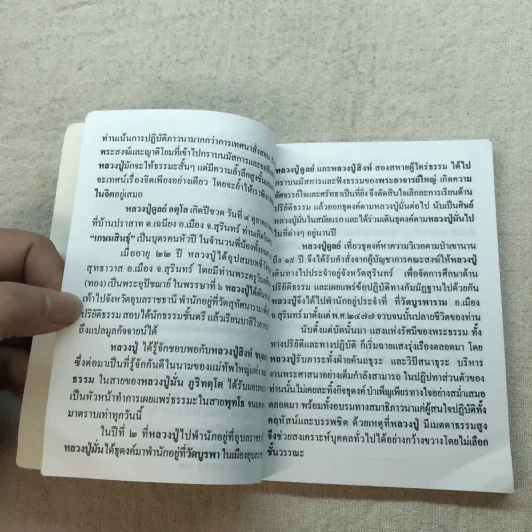 ท่านเน้นการปฏิบัติภาวนามากกว่าการเทศนาสั่งสอน
พระสงฆ์และญาติโยมที่เข้าไปกราบนมัสการและขอฟัง
หลวงปู่มักจะให้ธรรมะสั้นๆ แต่มีความล้ำลึกสูงชั้น
จะเทศน์เรื่องจิตเพียงอย่างเดียว โดยจะย้ำให้เรา
ในจิตอยู่เสมอ
หลวงปู่ดูลย์ อตุโล เกิดปีชวด วันที่ ๔ ตุลาคม
ที่บ้านปราสาท ต.เฉนียง อ.เมือง จ.สุรินทร์ ท่านเกิดใน
"เกษมสินธุ์" เป็นบุตรคนหัวปี ในจำนวนพี่น้องทั้งหมด
เมื่ออายุ ๒๒ ปี หลวงปู่ได้อุปสมบทที่วัด
สุทธาวาส อ.เมือง จ.สุรินทร์ โดยมีท่านพระครู
(ทอง) เป็นพระอุปัชฌาย์ ในพรรษาที่ ๖ หลวงปู่ได้เดิน
เท้าไปจังหวัดอุบลราชธานี พำนักอยู่ที่วัดสุทัศนาราม
ปริยัติธรรม สอบได้นักธรรมชั้นตรี แล้วเรียนบาลีไวยากรณ์
ถึงแปลมูลกัจจายน์ได้
หลวงปู่ ได้รู้จักชอบพอกับหลวงปู่สิงห์
ซึ่งต่อมาเป็นที่รู้จักกันดีในนามของแม่ทัพใหญ่
ธรรม ในสายของหลวงปู่มั่น ภูริทตฺโต ได้รับมอบ
เป็นหัวหน้าทำการเผยแพร่ธรรมะในสายพุทโธ จน
มาตราบเท่าทุกวันนี้
ในปีที่ ๒ ที่หลวงปู่ไปพำนักอยู่ที่อุบลราชธานี
หลวงปู่มั่นได้ธุดงค์มาพำนักอยู่ที่วัดบูรพา ในเมืองอุบล
หลวงปู่ดูลย์ และหลวงปู่สิงห์ สองสหายผู้ใคร่ธรรม ได้ไป
กราบนมัสการและฟังธรรมของพระอาจารย์ใหญ่ เกิดความ
อัศจรรย์ใจและศรัทธาเป็นที่ยิ่ง จึงตัดสินใจเลิกละการเรียนด้าน
ปริยัติธรรม แล้วออกธุดงค์ตามหลวงปู่มั่นต่อไป นับเป็นศิษย์
หลวงปู่มั่นในสมัยแรก และได้ร่วมเดินธุดงค์ตามหลวงปู่มั่นไป
ในที่ต่างๆ อยู่นานปี
หลวงปู่ดูลย์ เที่ยวธุดงค์หาความวิเวกตามป่าเขานาน
ถึง ๑๙ ปี จึงได้รับคำสั่งจากผู้บัญชาการคณะสงฆ์ให้หลวงปู่
เดินทางไปประจำอยู่จังหวัดสุรินทร์ เพื่อจัดการศึกษาด้าน
ปริยัติธรรม และเผยแพร่ข้อปฏิบัติทางกัมมัฏฐานไปด้วยกัน
หลวงปู่จึงได้ไปพำนักอยู่ประจำที่ ที่วัดบูรพาราม อ.เมือง
จ.สุรินทร์มาตั้งแต่ พ.ศ.๒๔๗๗ จวบจนบั้นปลายชีวิตของท่าน
นับตั้งแต่บัดนั้นมา แสงแห่งรัศมีของพระธรรม ทั้ง
ทางปริยัติและทางปฏิบัติ ก็เริ่มฉายแสงรุ่งเรืองตลอดมา โดย
หลวงปู่รับภาระทั้งฝ่ายคันถธุระ และวิปัสนาธุระ บริหาร
งานพระศาสนาอย่างเต็มกำลังสามารถ ในปฏิปทาส่วนตัวของ
ท่านนั้นไม่เคยละทิ้งกิจธุดงค์ บำเพ็ญเพียรทางใจอย่างสม่ำเสมอ
ตลอดมา พร้อมทั้งอบรมทางสมาธิภาวนาแก่ผู้สนใจปฏิบัติทั้ง
คฤหัสถ์และบรรพชิต ด้วยเหตุที่หลวงปู่ มีเมตตาธรรมสูง
จึงช่วยสงเคราะห์บุคคลทั่วไปได้อย่างกว้างขวางโดยไม่เลือก
ชั้นวรรณะ